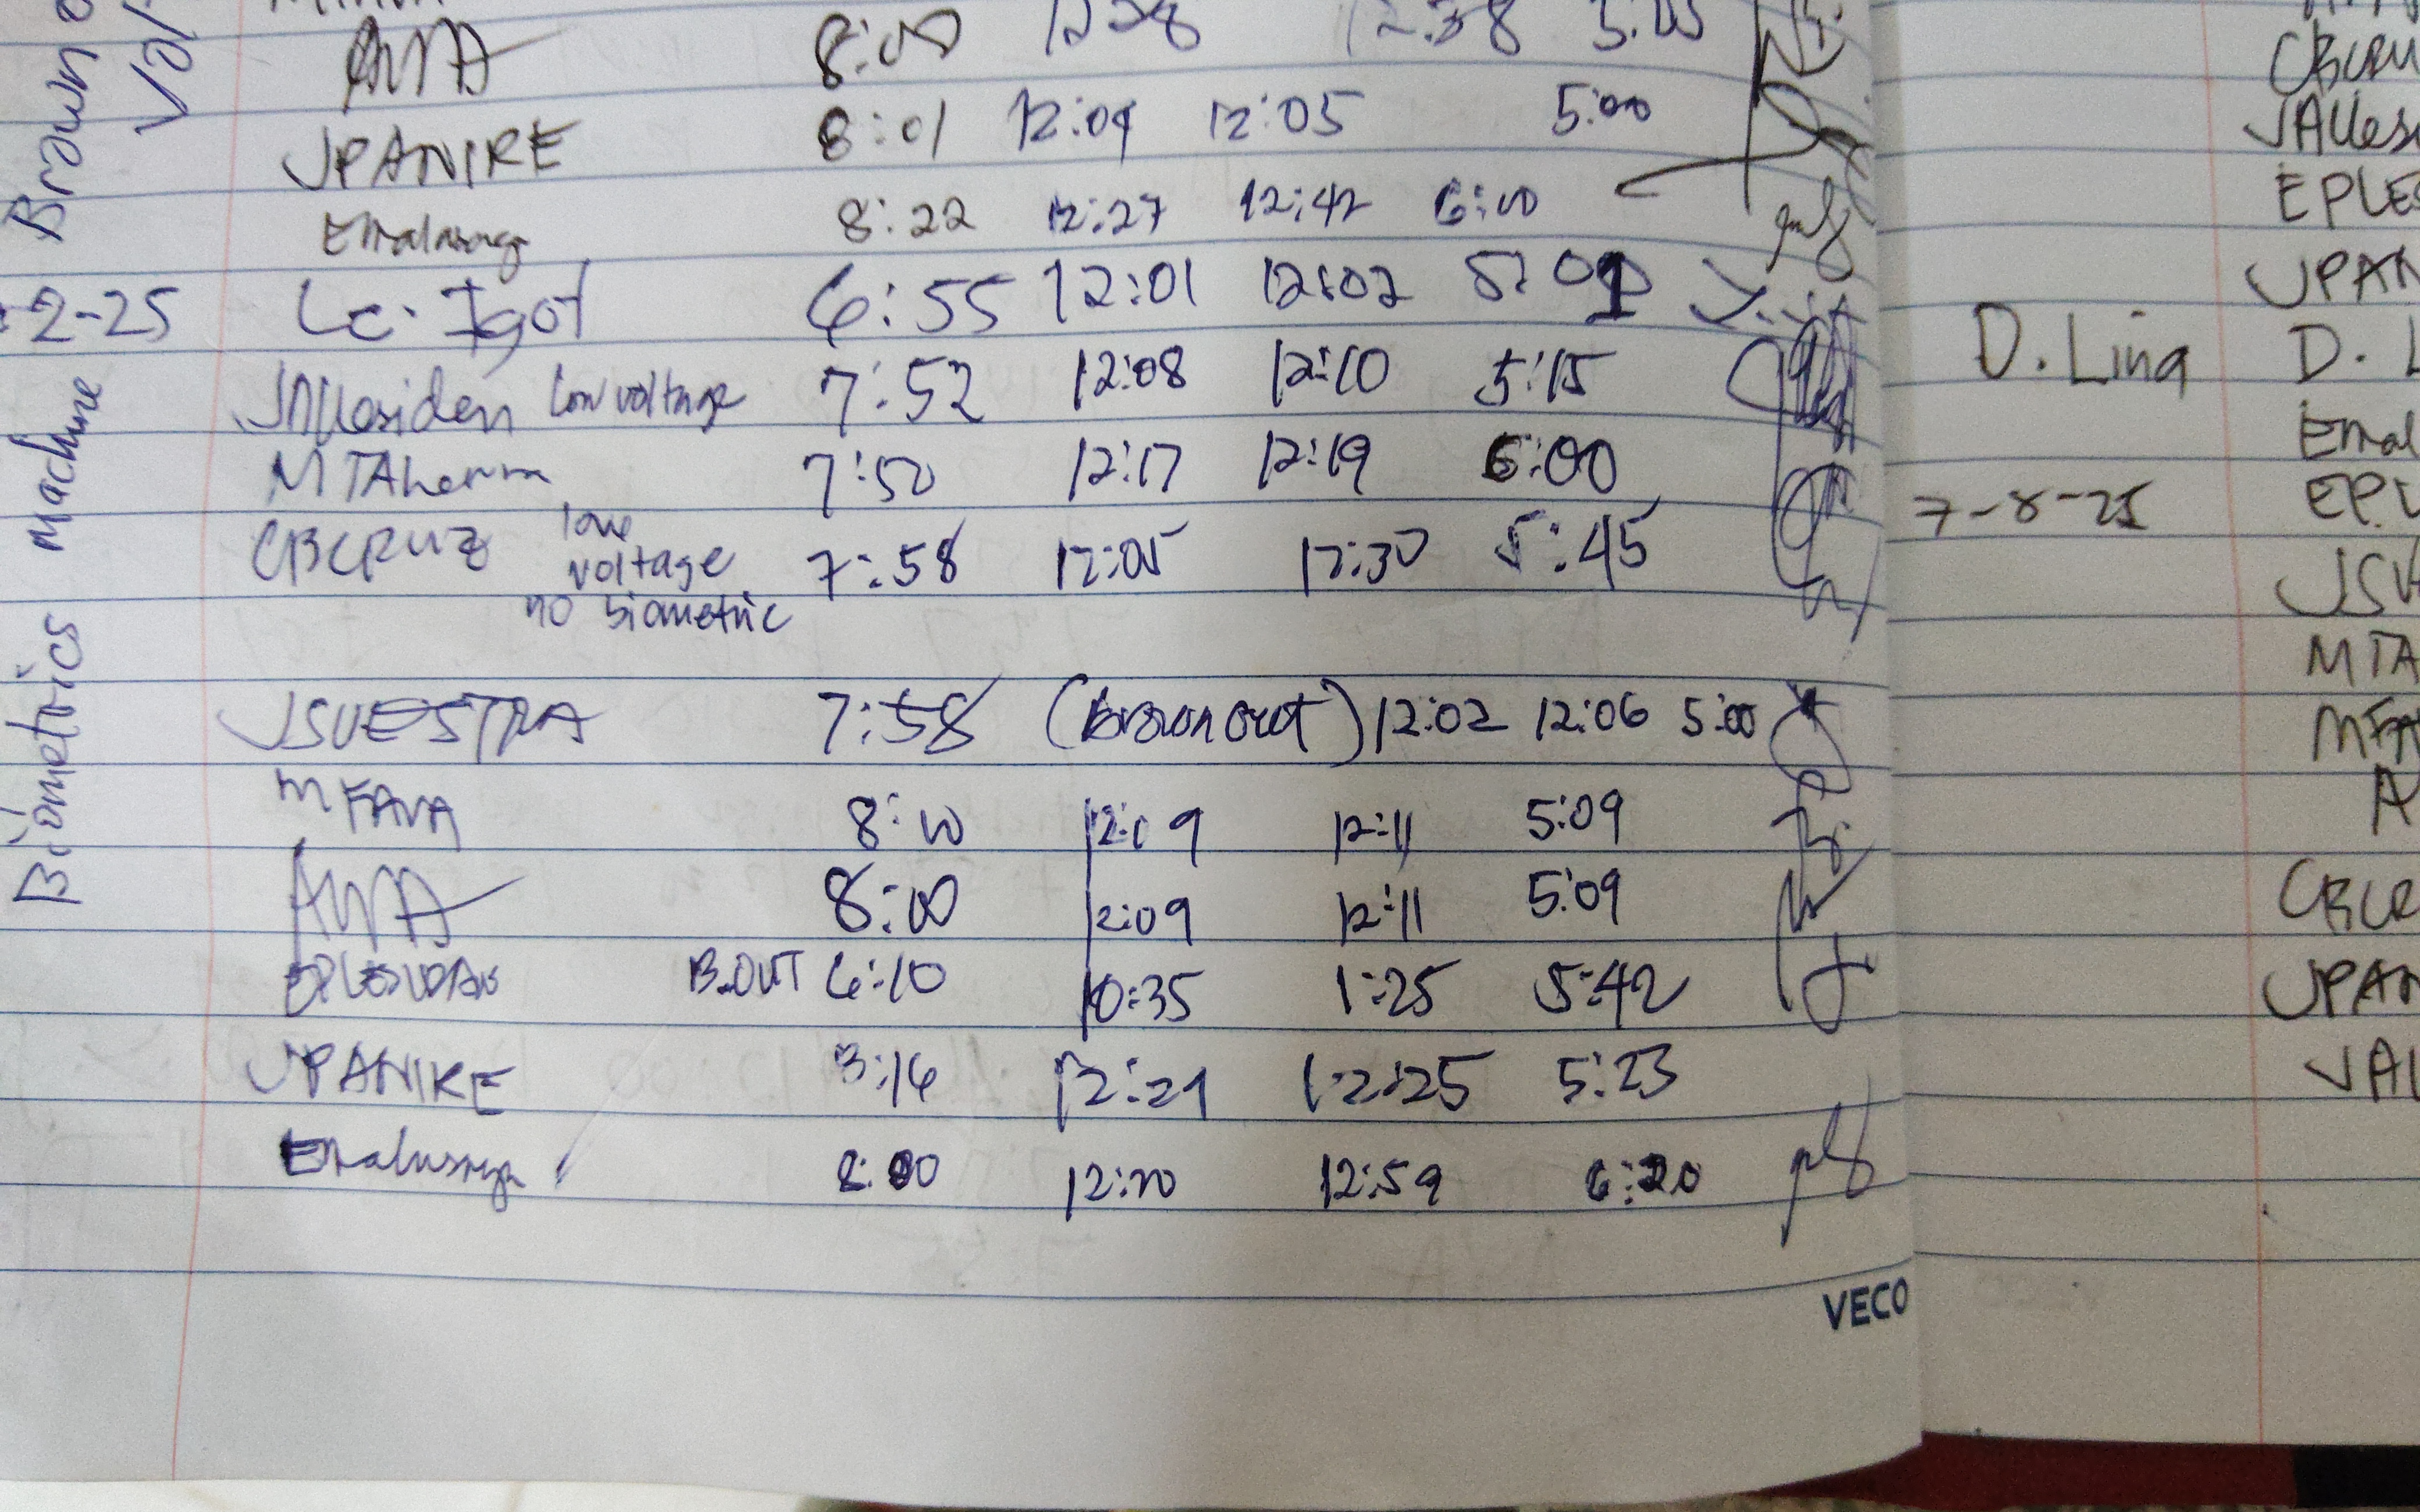 Brown
8:00 12:38 5:05
JPANIRE 8:01 12:09 12:05 5:00
Emalnsaga 8:22 12:27 12:42 6:10
2-25 Lc. Igot 6:55 12:01 12:02 5:01
JAllesiden Low voltage 7:52 12:08 12:10 5:15
MTAherrn 7:50 12:17 12:19 6:00
CBCRUZ low voltage no biometric 7:58 12:05 12:30 5:45
Biometrics machine
JSUESTRA 7:58 (Brown out) 12:02 12:06 5:00
MFAVA 8:10 12:09 12:11 5:09
8:00 12:09 12:11 5:09
B.OUT 6:10 10:35 1:25 5:42
JPANIKE 12:21 12:25 5:23
8:00 12:20 12:59 6:20
VECO
CBCRU
JAlles
EPLES
JPAN
D. Lina D. L
Emal
7-8-25 EP.L
JSU
MTA
MFA
A
CBCR
JPAN
JAL